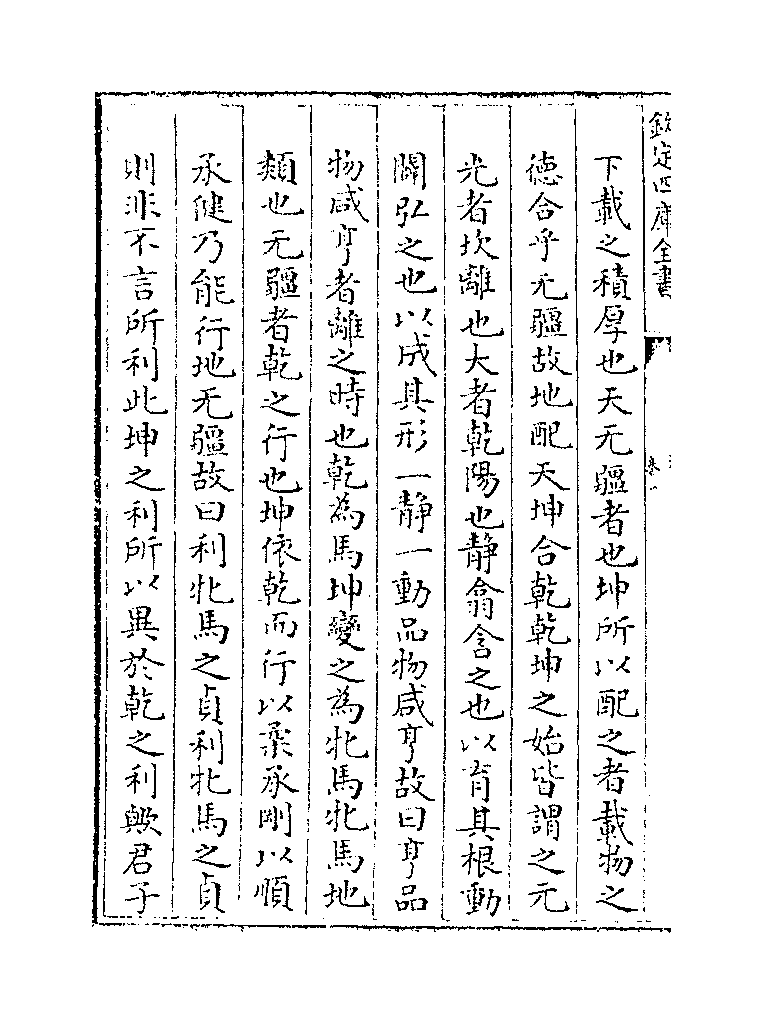 欽定四庫全書
卷一
下載之積厚也天无疆者也坤所以配之者載物之
德合乎无疆故地配天坤合乾乾坤之始皆謂之元
光者坎離也大者乾陽也静翕含之也以育其根動
闢弘之也以成其形一静一動品物咸亨故曰亨品
物咸亨者離之時也乾為馬坤變之為牝馬牝馬地
類也无疆者乾之行也坤依乾而行以柔承剛以順
承健乃能行地无疆故曰利牝馬之貞利牝馬之貞
則非不言所利此坤之利所以異於乾之利歟君子